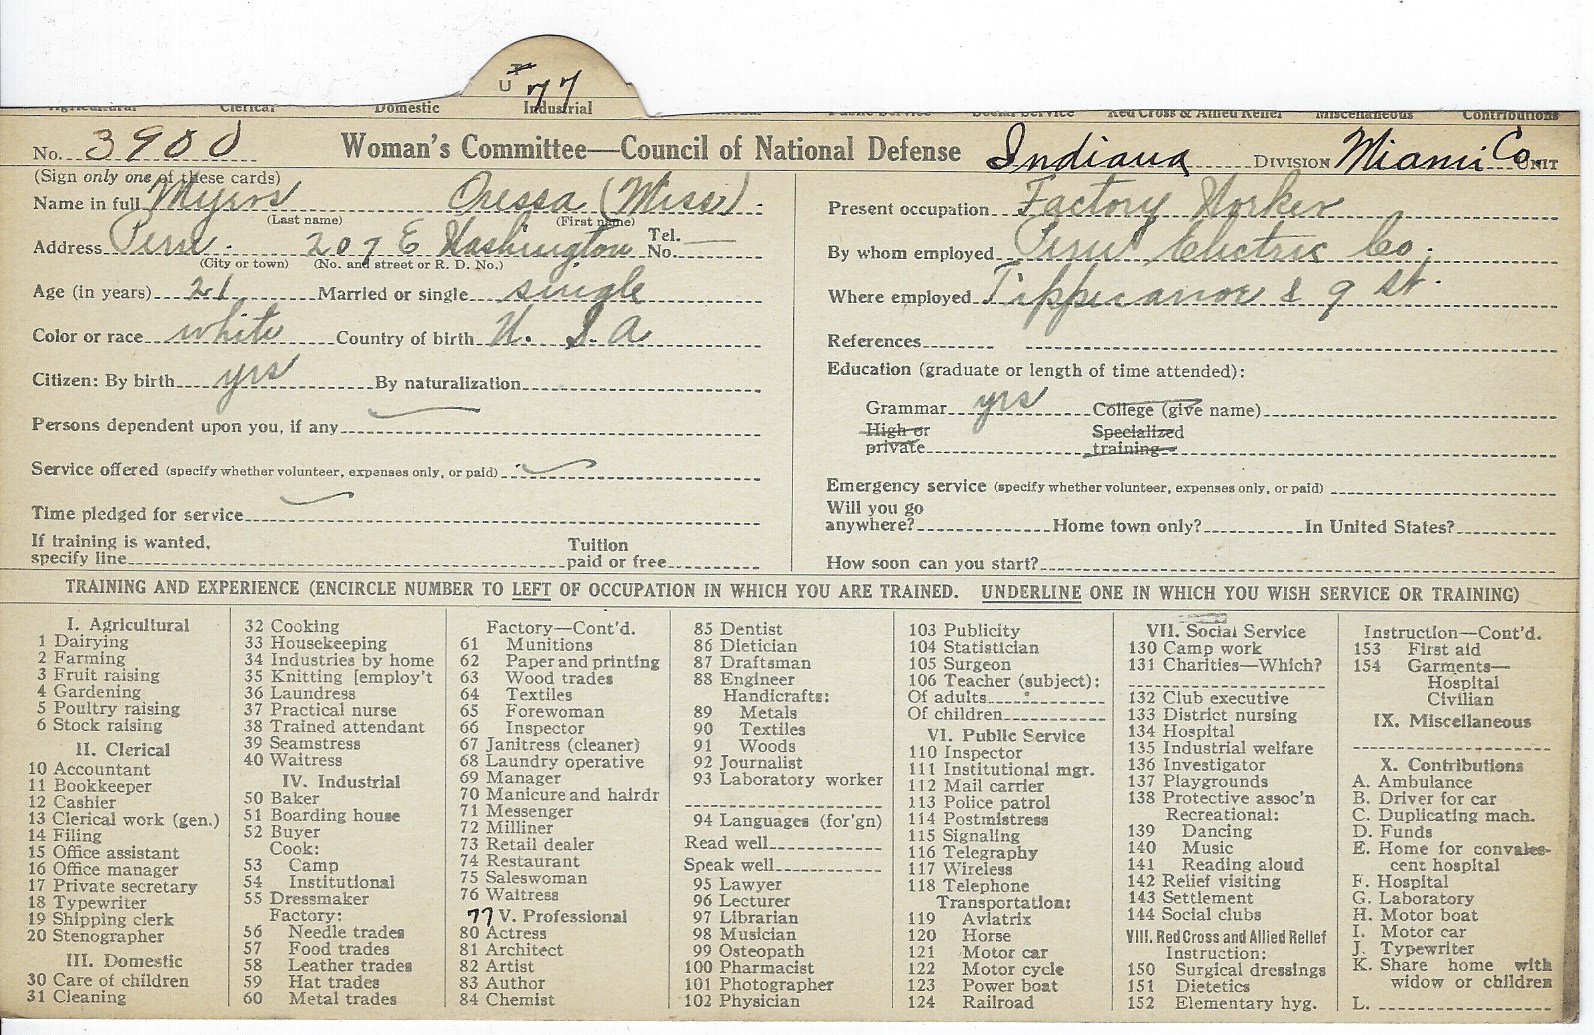 U 77
Clerical Domestic Industrial Social Service Red Cross & Allied Relief Miscellaneous Contributions
No. 3900 Woman's Committee—Council of National Defense Indiana DIVISION Miami Co. UNIT
(Sign only one of these cards)
Name in full Myers Oressa (Miss)
(Last name) (First name)
Address Peru. 207 E Washington Tel. No.
(City or town) (No. and street or R. D. No.)
Age (in years) 21 Married or single single
Color or race white Country of birth U. S. A
Citizen: By birth yes By naturalization
Persons dependent upon you, if any
Service offered (specify whether volunteer, expenses only, or paid)
Time pledged for service
If training is wanted, specify line Tuition paid or free
Present occupation Factory Worker
By whom employed Peru Electric Co.
Where employed Tippecanoe & 9 St.
References
Education (graduate or length of time attended):
Grammar yes College (give name)
High or private Specialized training
Emergency service (specify whether volunteer, expenses only, or paid)
Will you go anywhere? Home town only? In United States?
How soon can you start?
TRAINING AND EXPERIENCE (ENCIRCLE NUMBER TO LEFT OF OCCUPATION IN WHICH YOU ARE TRAINED. UNDERLINE ONE IN WHICH YOU WISH SERVICE OR TRAINING)
I. Agricultural
1 Dairying
2 Farming
3 Fruit raising
4 Gardening
5 Poultry raising
6 Stock raising
II. Clerical
10 Accountant
11 Bookkeeper
12 Cashier
13 Clerical work (gen.)
14 Filing
15 Office assistant
16 Office manager
17 Private secretary
18 Typewriter
19 Shipping clerk
20 Stenographer
III. Domestic
30 Care of children
31 Cleaning
32 Cooking
33 Housekeeping
34 Industries by home
35 Knitting [employ't
36 Laundress
37 Practical nurse
38 Trained attendant
39 Seamstress
40 Waitress
IV. Industrial
50 Baker
51 Boarding house
52 Buyer
Cook:
53 Camp
54 Institutional
55 Dressmaker
Factory:
56 Needle trades
57 Food trades
58 Leather trades
59 Hat trades
60 Metal trades
Factory—Cont'd.
61 Munitions
62 Paper and printing
63 Wood trades
64 Textiles
65 Forewoman
66 Inspector
67 Janitress (cleaner)
68 Laundry operative
69 Manager
70 Manicure and hairdr
71 Messenger
72 Milliner
73 Retail dealer
74 Restaurant
75 Saleswoman
76 Waitress
77 V. Professional
80 Actress
81 Architect
82 Artist
83 Author
84 Chemist
85 Dentist
86 Dietician
87 Draftsman
88 Engineer
Handicrafts:
89 Metals
90 Textiles
91 Woods
92 Journalist
93 Laboratory worker
94 Languages (for'gn)
Read well
Speak well
95 Lawyer
96 Lecturer
97 Librarian
98 Musician
99 Osteopath
100 Pharmacist
101 Photographer
102 Physician
103 Publicity
104 Statistician
105 Surgeon
106 Teacher (subject):
Of adults
Of children
VI. Public Service
110 Inspector
111 Institutional mgr.
112 Mail carrier
113 Police patrol
114 Postmistress
115 Signaling
116 Telegraphy
117 Wireless
118 Telephone
Transportation:
119 Aviatrix
120 Horse
121 Motor car
122 Motor cycle
123 Power boat
124 Railroad
VII. Social Service
130 Camp work
131 Charities—Which?
132 Club executive
133 District nursing
134 Hospital
135 Industrial welfare
136 Investigator
137 Playgrounds
138 Protective assoc'n
Recreational:
139 Dancing
140 Music
141 Reading aloud
142 Relief visiting
143 Settlement
144 Social clubs
VIII. Red Cross and Allied Relief
Instruction:
150 Surgical dressings
151 Dietetics
152 Elementary hyg.
Instruction—Cont'd.
153 First aid
154 Garments—
Hospital
Civilian
IX. Miscellaneous
X. Contributions
A. Ambulance
B. Driver for car
C. Duplicating mach.
D. Funds
E. Home for convales-
cent hospital
F. Hospital
G. Laboratory
H. Motor boat
I. Motor car
J. Typewriter
K. Share home with
widow or children
L.